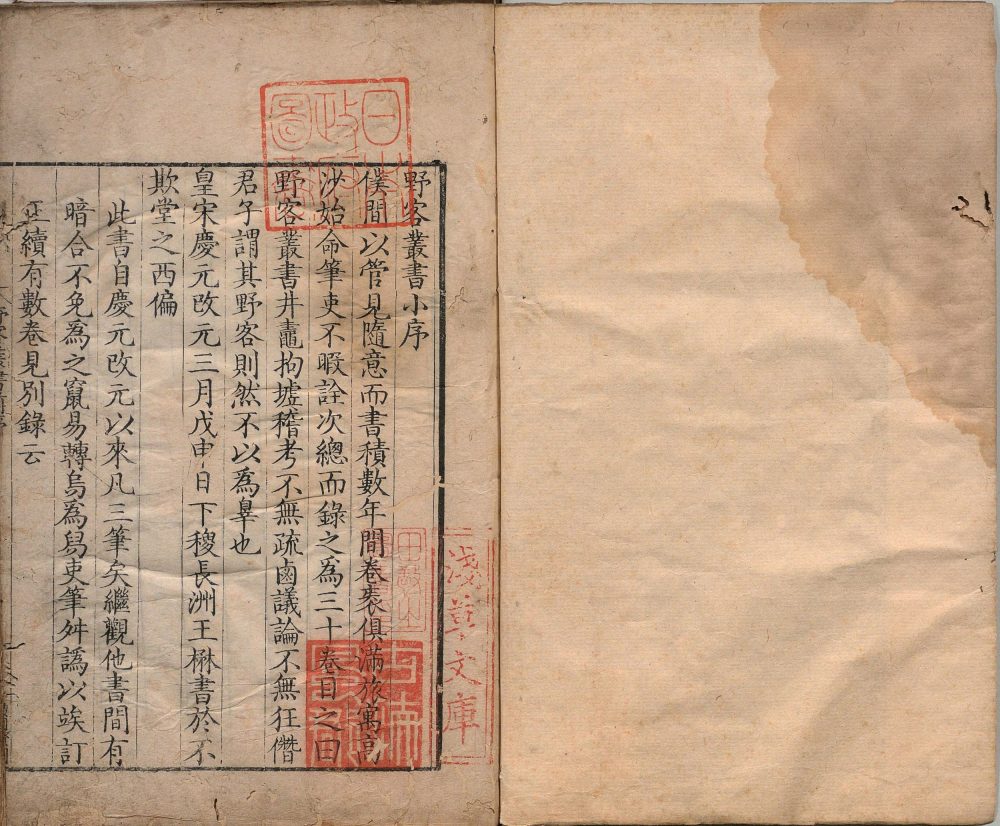 野客叢書小序
僕間以管見隨意而書積數年間卷袠俱滿旅寓高
沙始命筆吏不暇詮次總而錄之為三十卷目之曰
野客叢書井鼃拘墟稽考不無疏鹵議論不無狂僭
君子謂其野客則然不以為辠也
皇宋慶元改元三月戊申日下稷長洲王楙書於不
欺堂之西偏
此書自慶元改元以來凡三筆矣繼觀他書間有
暗合不免為之竄易轉烏為舄吏筆舛譌以竢訂
正續有數卷見別錄云
日本
政府
圖書
淺草文庫